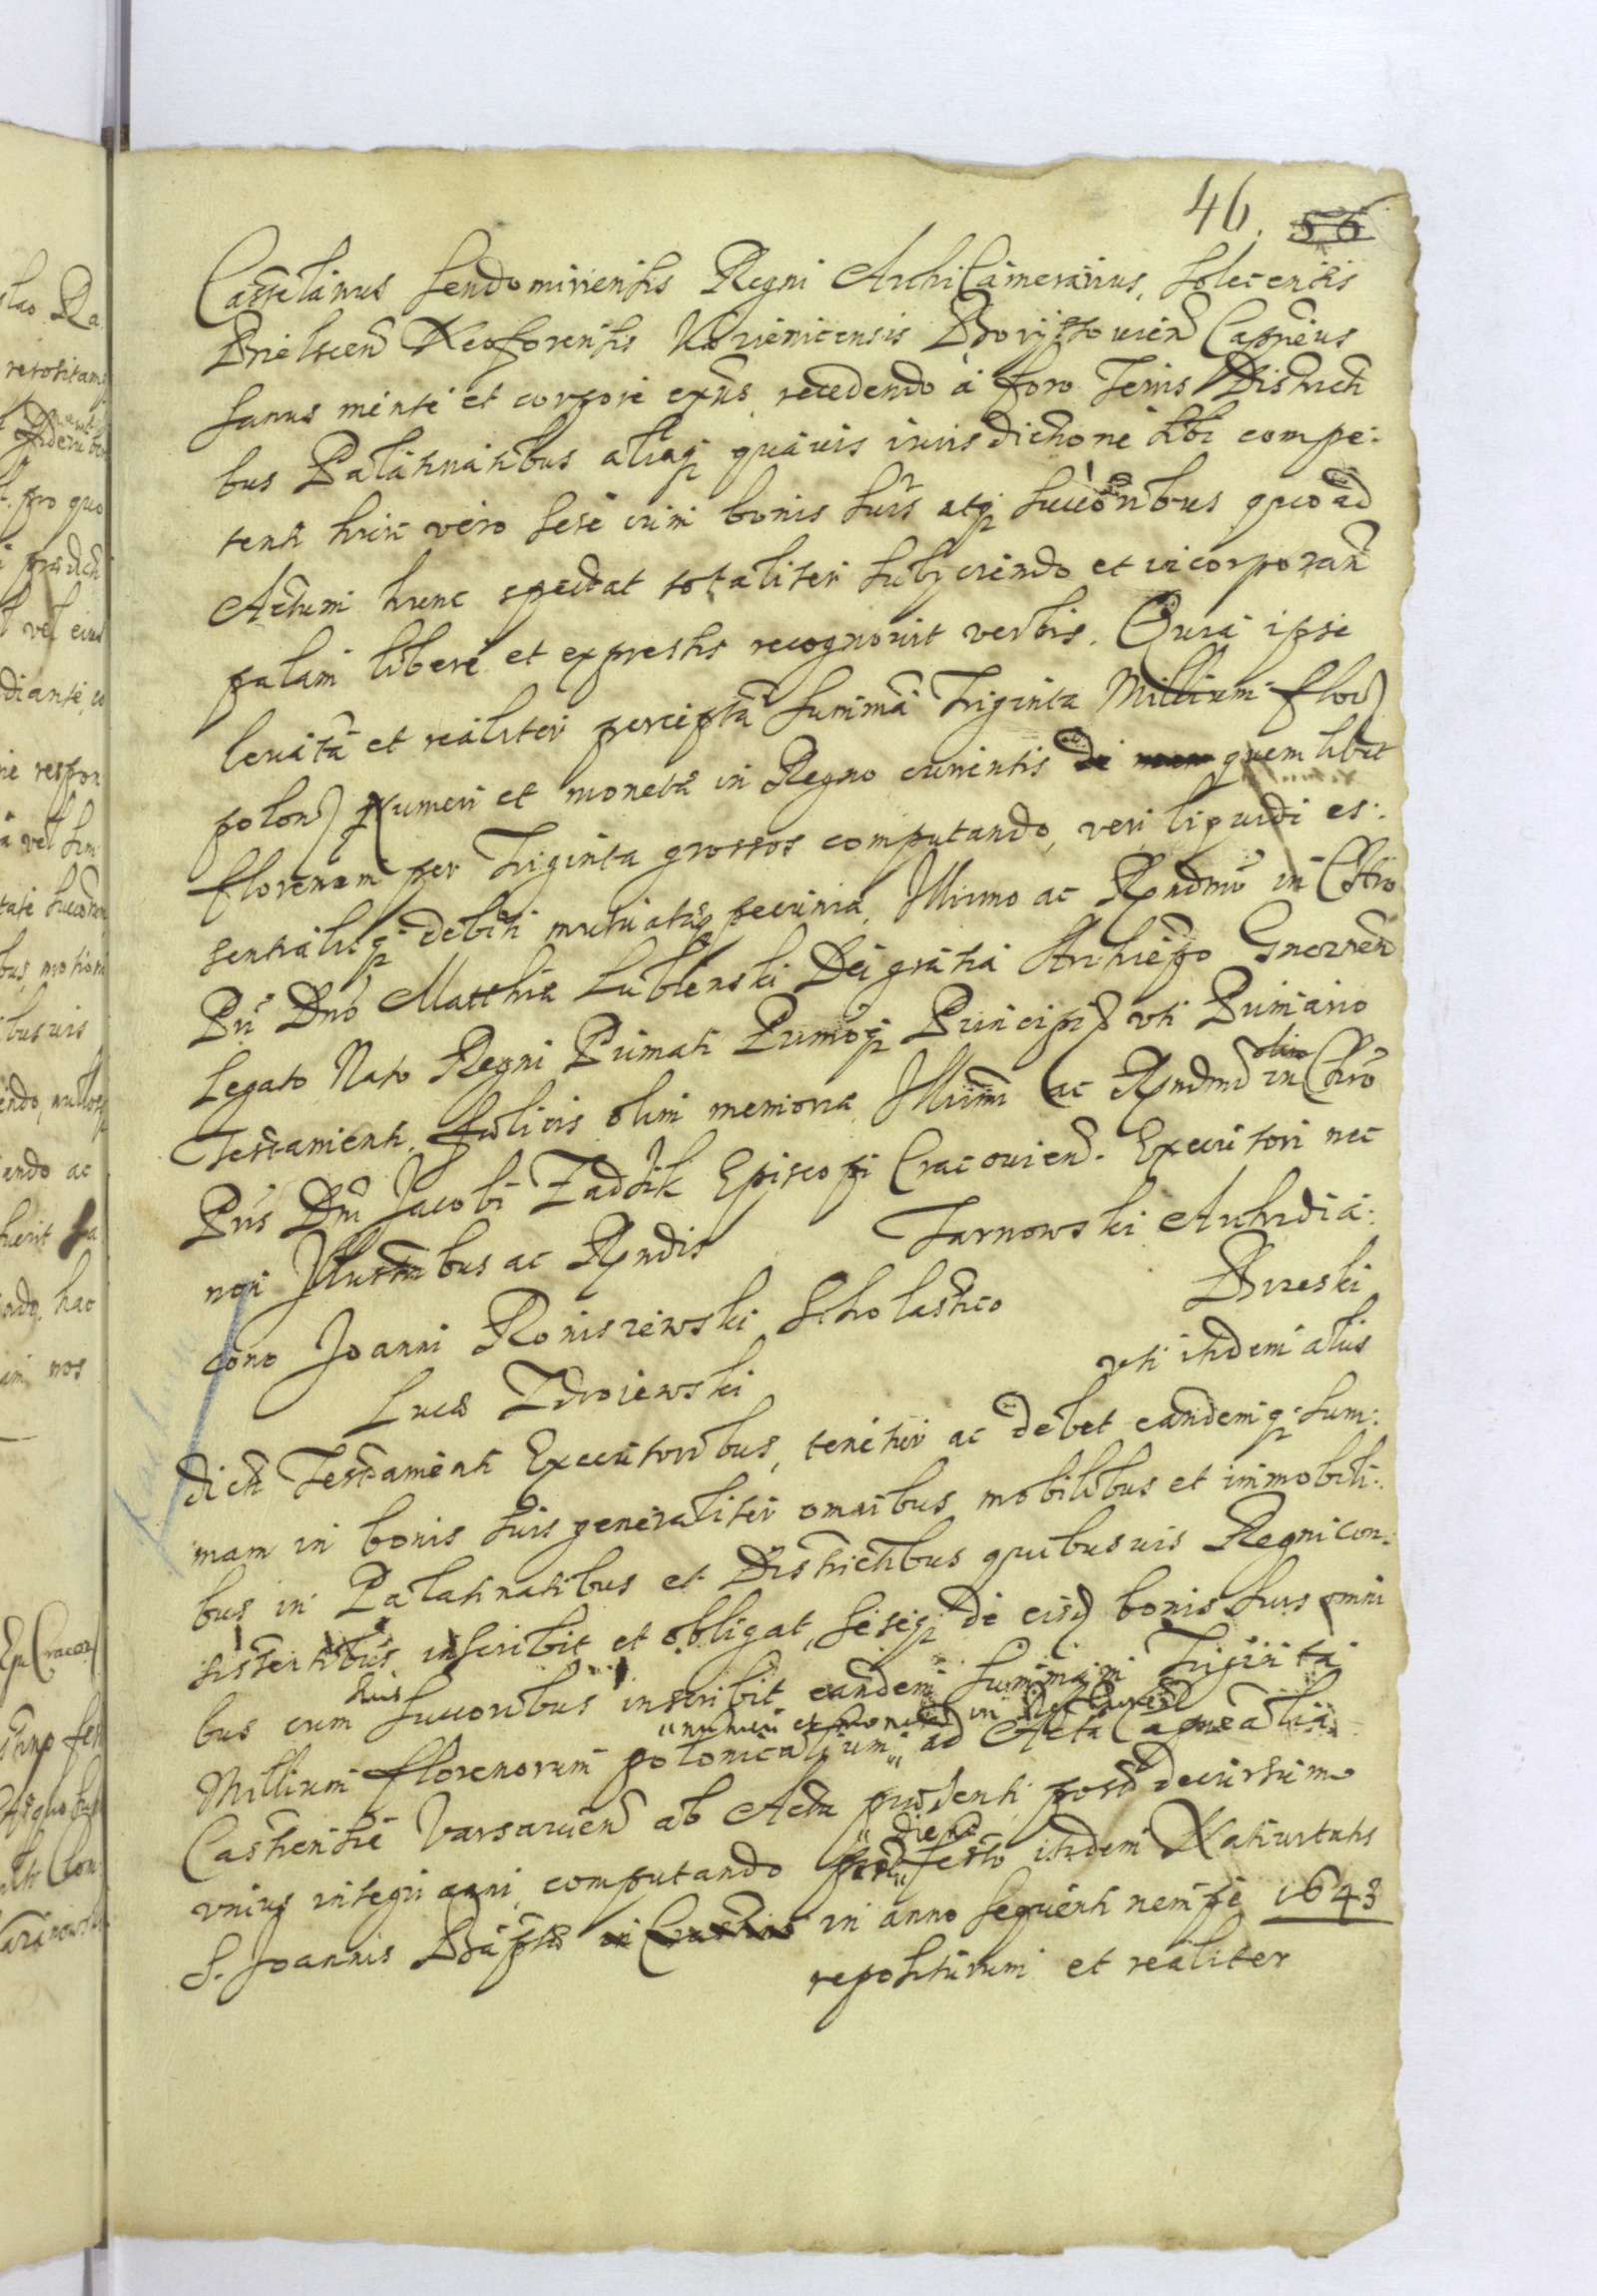 46. 56
Castellanus Sendomiriensis Regni ArchiCamerarius, Solecensis
Bielscen Neoforensis Kozienicensis Borÿssouien Capneus
sanus mente et corpore exñs recedendo à foro Terris Districti
bus Palatinatibus aliaq quauis iurisdictione sibi compe:
tenti huic vero sese cum bonis suis atq succoribus quo ad
Actum hunc spectat totaliter subijciendo et incorporan
palam libere et expressis recognouit verbis. Quia ipse
leuatã et realiter perceptã summã Triginta Millium flor
polon numeri et moneta in Regno currentis quem libet
florenum per Triginta grossos computando, veri liquidi es:
sentialisq debiti mutuatæ pecuniæ, Illrmo ac Rndmo in Chro
Pri Dno Matthiæ Lubienski Dei gratia Archiepo Gneznen
Legato Nato Regni Primati Primoq Principi vti Primario
Testamenti fœlicis olim memoriæ Illrmi ac Rndmi olim in Chro
Pris Dni Jacobi Zadzik Episcopi Cracouien. Executori nec
non Illustribus ac Rndis Tarnowski Archidia:
cono Joanni Roniszewski Scholastico Brzeski
Lucæ Zdroiewski vti itidem alÿs
dicti Testamenti Executoribus, tenetur ac debet eandemq sum:
mam in bonis suis generaliter omnibus mobilibus et immobili:
bus in Palatinatibus et Districtibus quibusuis Regni con:
sistentibus inscribit et obligat, seseq de eisd bonis suis omni
bus cum suis succoribus inscribit eandem summam Triginta
numeri et moneta in
Millium florenorum polonicalium ad Acta Capnealia
Castrensia Varsauien ab Actu præsenti post decursum
vnius integri anni computando
die
festo itidem Natiuitatis
S. Joannis Baptæ in Crastino in anno sequenti nempe 1643
repositurum et realiter